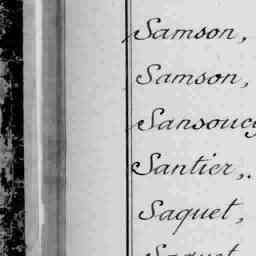 Samson,
Samson,
Sansoucy
Santier,.
Saquet,
Saquet